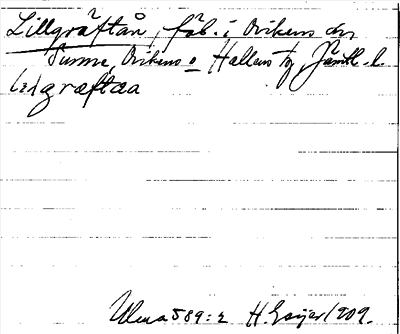 Lillgräftån, fäb. i Ovikens sn
Sunne, Ovikens o Hallens tg, Jämtl. l.
græftæa
Ulma 589:2 H. Geijer 1909.